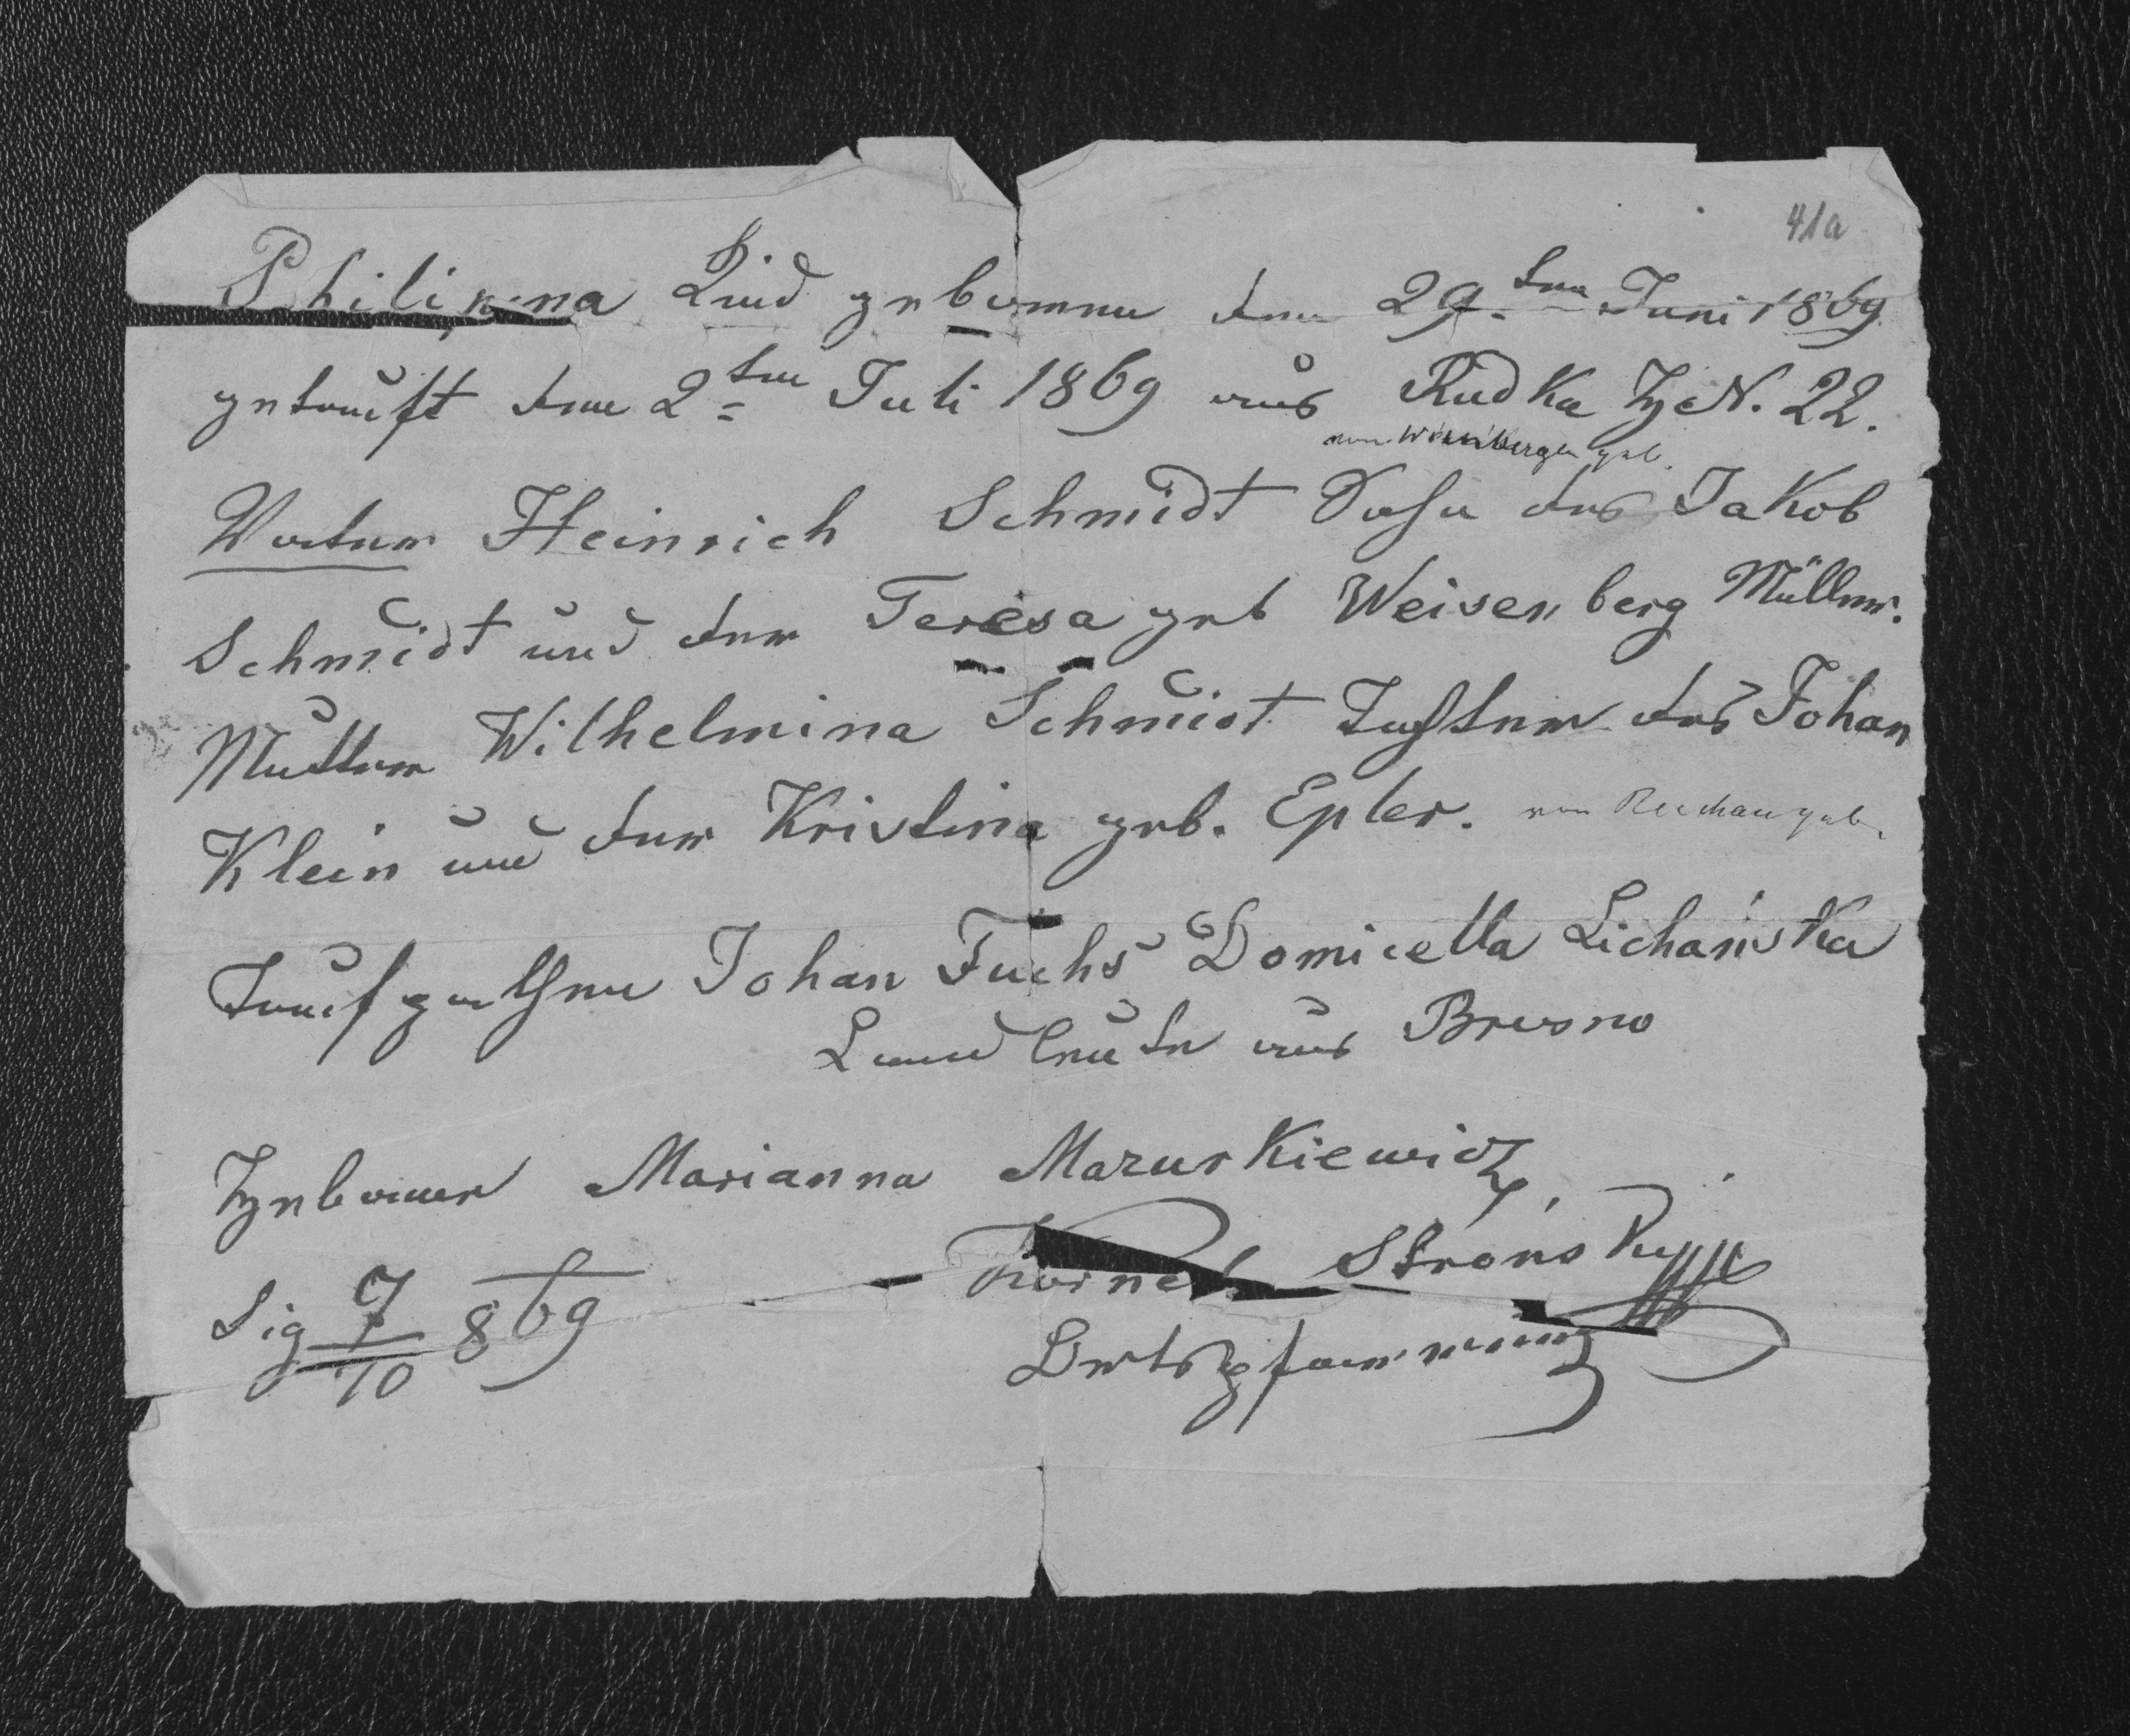 41a
Philipina Kind geboren den 29ten Juni 1869
getauft den 2ten Juli 1869 aus Rudka H N. 22.
von geb.
Vater Heinrich Schmidt Sohn des Jakob
Schmidt und der Teresa geb Weisenberg Müller.
Mutter Wilhelmina Schmidt Tochter des Johan
Klein und der Kristina geb. Epler. von Reichau geb.
Taufpathen Johan Fuchs Domicella Lichańska
Landleute aus Brusno
Hebamme Marianna Mazurkiewicz,
Sig 7/10 869 Kornel Stroński
Ortspfarrer